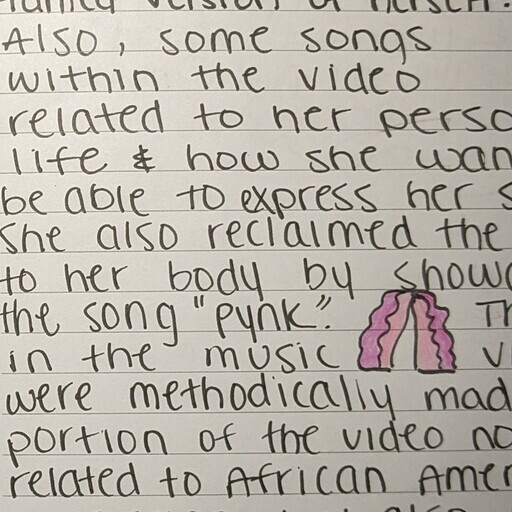 version of herself.
Also, some songs
within the video
related to her perso
life & how she wan
be able to express her s
She also reclaimed the
to her body by showc
the song "Pynk". Th
in the music v
were methodically mad
portion of the video no
related to African Amer
also